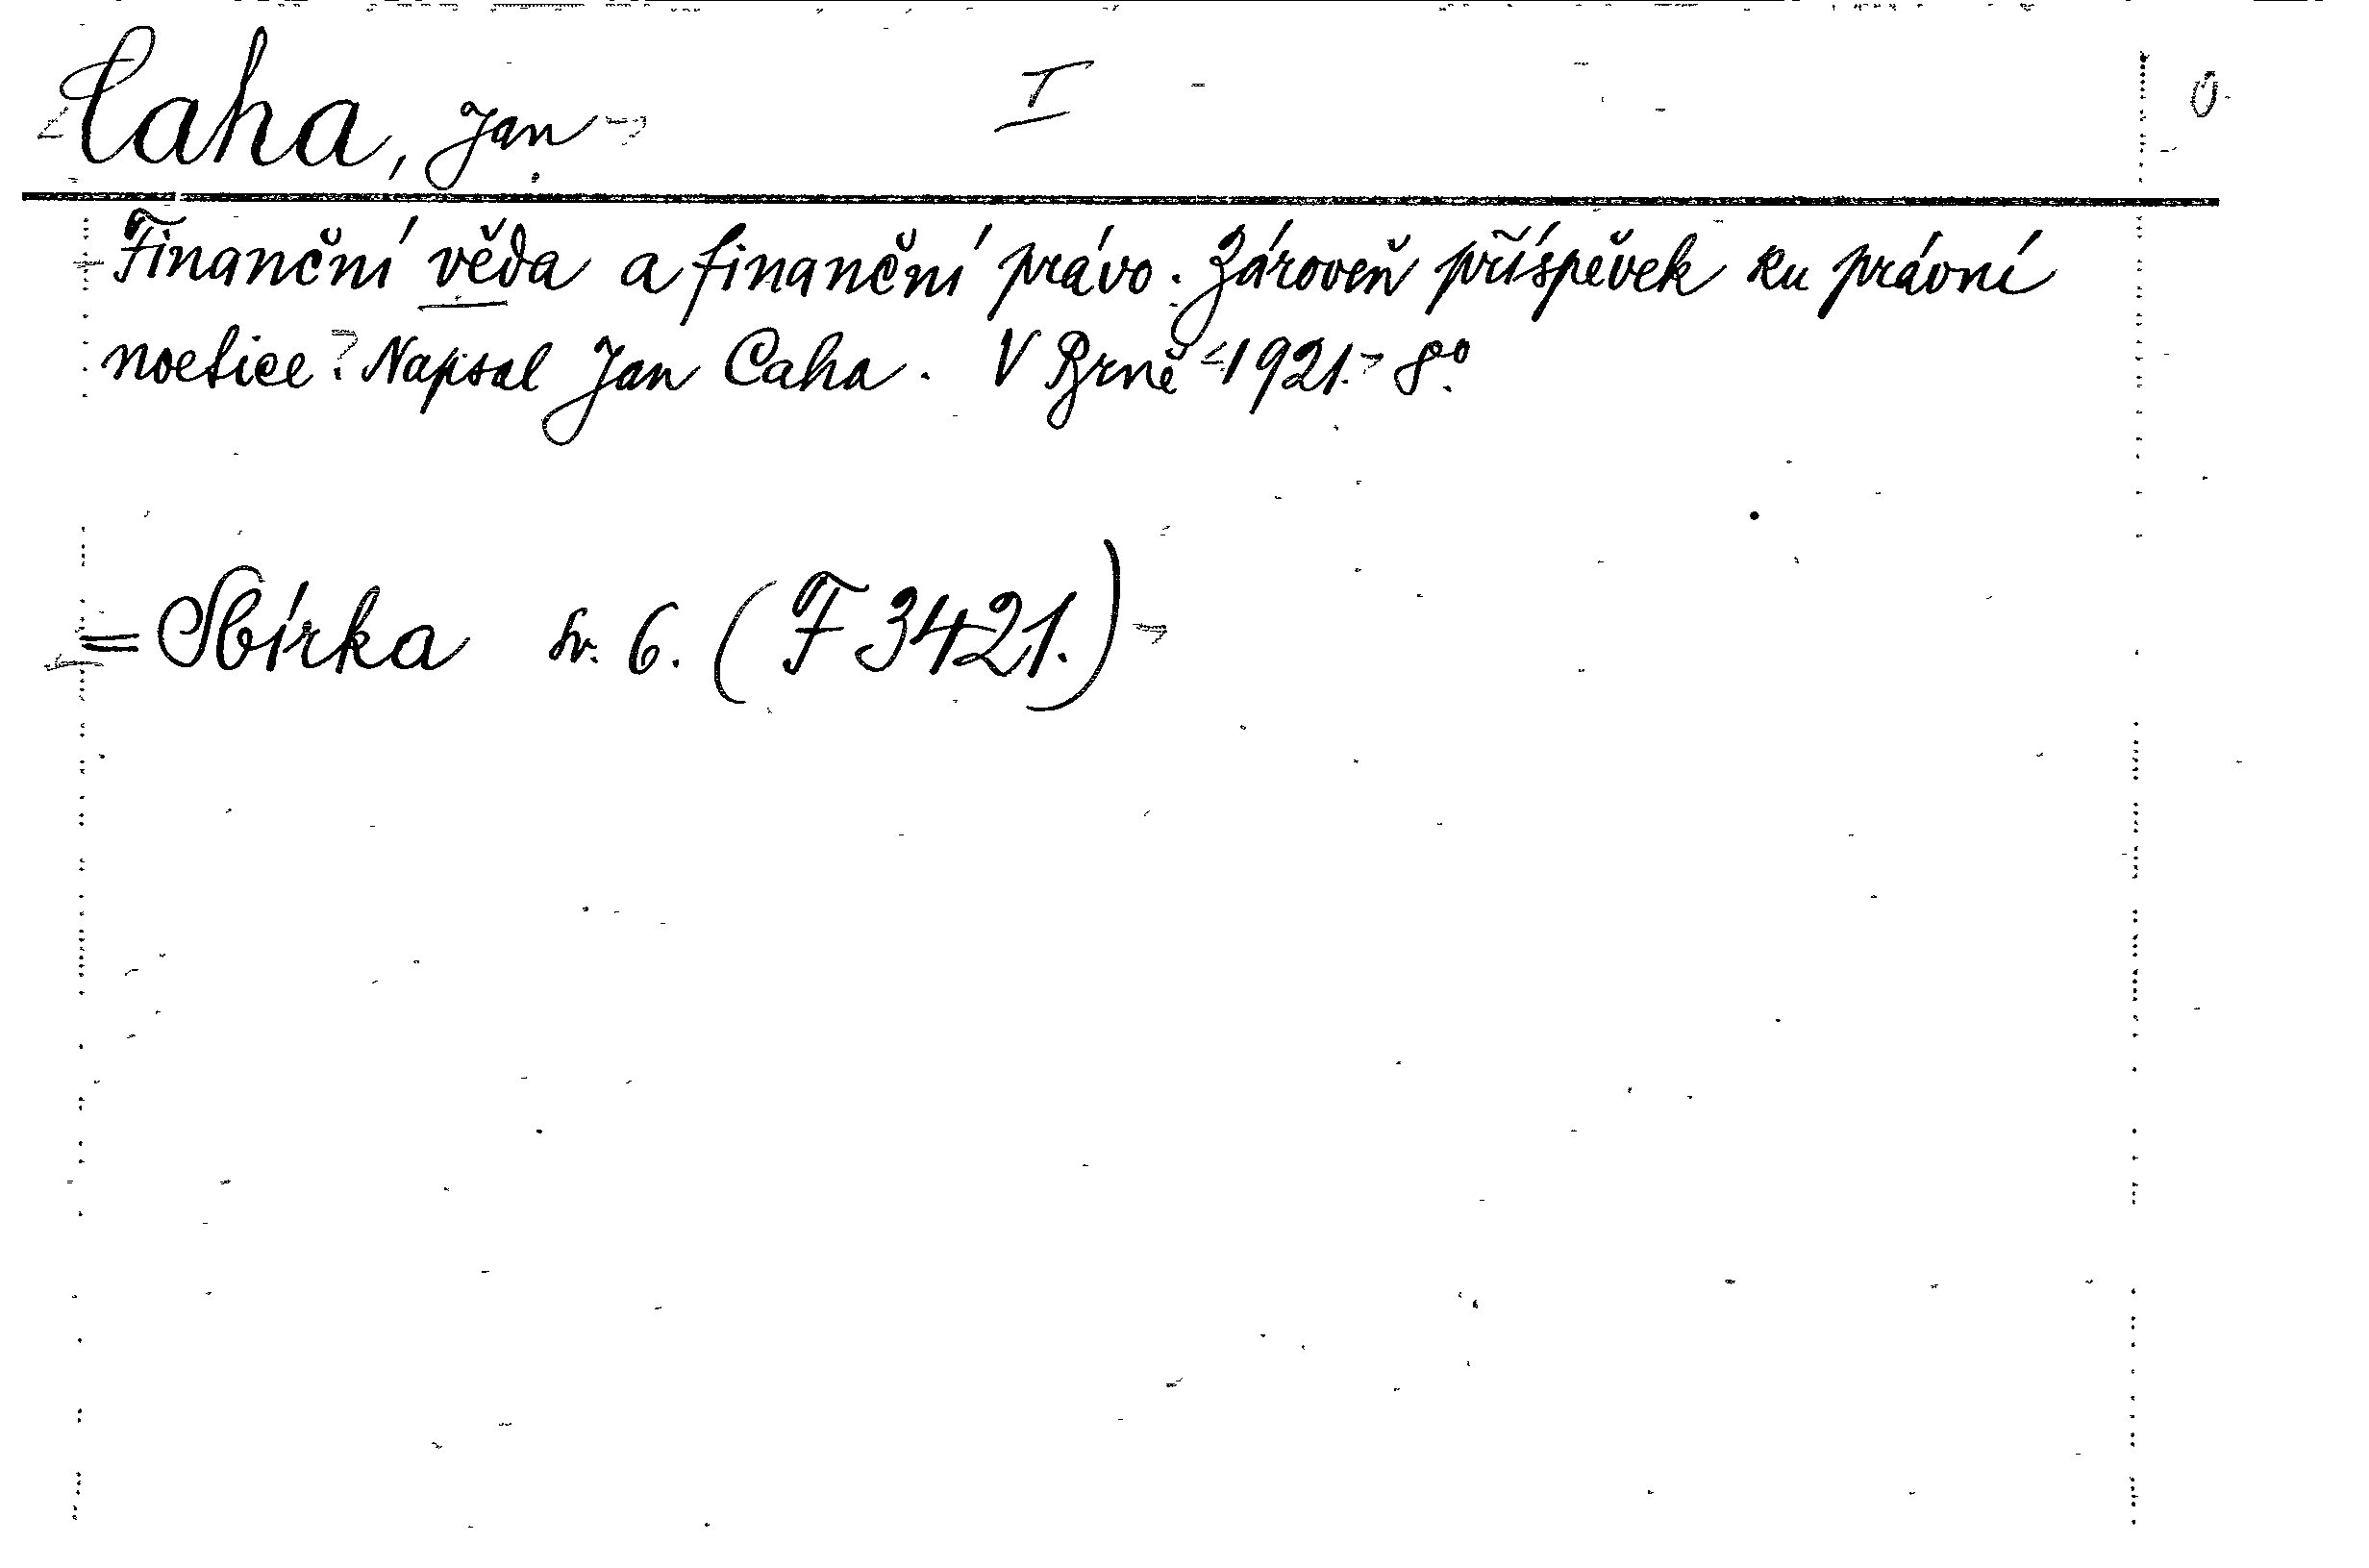 Caha, Jan I 0
Finanční věda a finanční právo. Zároveň příspěvek ku právní
noetice? Napsal Jan Caha. V Brně <1921.> 8°.
= Sbírka sv. 6. (F 3421.)